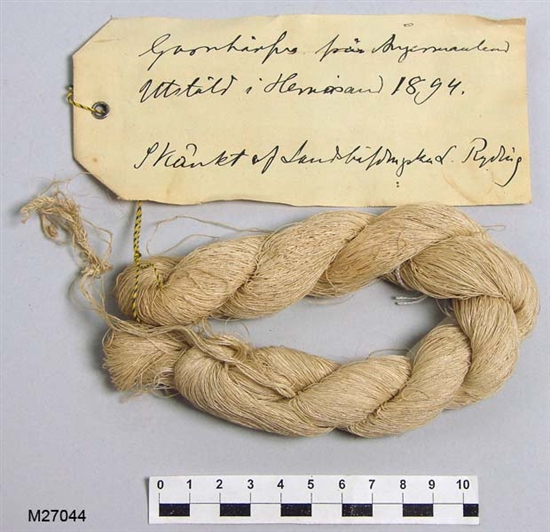 Garnhärfva från Ångermanland
Utstäld i Hernösand 1894.
Skänkt af L. Ryding
0 1 2 3 4 5 6 7 8 9 10
M27044